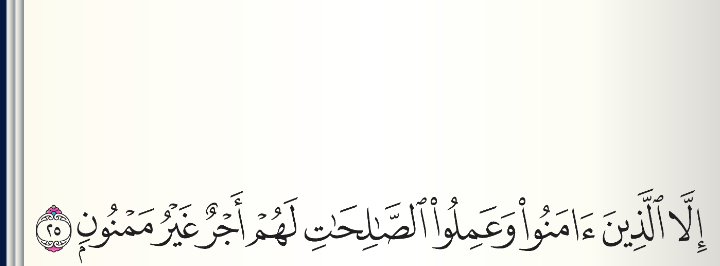 إِلَّا ٱلَّذِينَ ءَامَنُوا۟ وَعَمِلُوا۟ ٱلصَّـٰلِحَـٰتِ لَهُمْ أَجْرٌ غَيْرُ مَمْنُونٍۭ ٢٥